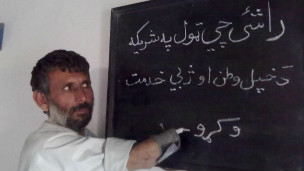 راشئ چې ټول په شريکه
د خپل وطن او ژبې خدمت
وکړو -